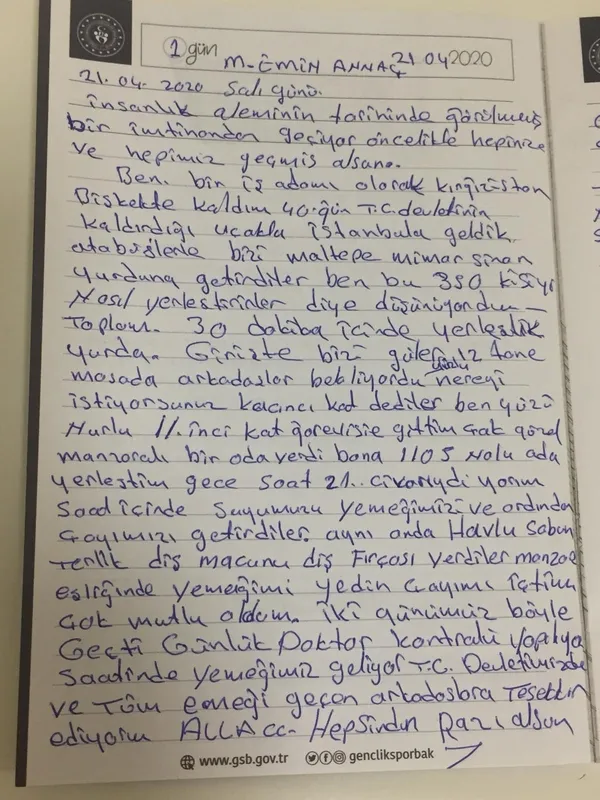 1 gün M-EMİN ANNAÇ 21 04 2020
21.04.2020 Salı günü.
insanlık aleminin tarihinde görülmemiş
bir imtihandan geçiyor öncelikle hepinize
ve hepimiz geçmiş olsun.
Ben. bir iş adamı olarak kırgızistan
Bişkekte kaldım 40.gün T.C. devletinin
kaldırdığı uçakla İstanbula geldik.
otobüslerle bizi maltepe mimar sinan
yurduna getirdiler ben bu 350 kişiyi
Nasıl yerleştirirler diye düşünüyordum
Toplam. 30 dakika içinde yerleştik
yurda. Girişte bizi güler yüzlü 12 tane
masada arkadaşlar bekliyordu nereyi
istiyorsunuz kaçıncı kat dediler ben yüzü
Nurlu 11.inci kat görevlisile gittim çok güzel
manzaralı bir oda verdi bana 1105 Nolu oda
yerleştim gece saat 21.. civarıydı yarım
Saat içinde Suyumuzu yemeğimizi ve ardından
çayımızı getirdiler. aynı anda Havlu Sabun
Terlik diş macunu diş Fırçası verdiler manzara
eşliğinde yemeğimi yedim çayımı içtim
çok mutlu oldum. iki günümüz böyle
Geçti Günlük Doktor kontrolü yapılıyor
Saatinde yemeğimiz geliyor T.C. Devletimizde
ve Tüm emeği geçen arkadaşlara Teşekkür
ediyorum ALLA cc. Hepsinden Razı olsun
www.gsb.gov.tr gencliksporbak